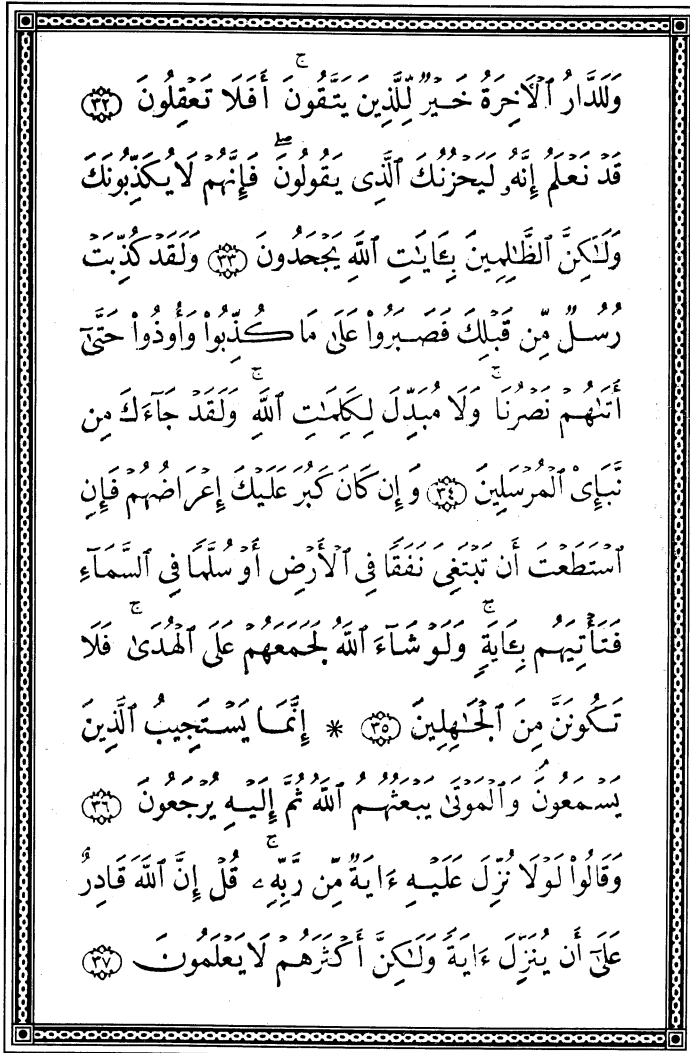 وَلَلدَّارُ ٱلْأٓخِرَةُ خَيْرٌ لِّلَّذِينَ يَتَّقُونَۚ أَفَلَا تَعْقِلُونَ ٣٢
قَدْ نَعْلَمُ إِنَّهُۥ لَيَحْزُنُكَ ٱلَّذِى يَقُولُونَۖ فَإِنَّهُمْ لَا يُكَذِّبُونَكَ
وَلَٰكِنَّ ٱلظَّٰلِمِينَ بِـَٔايَٰتِ ٱللَّهِ يَجْحَدُونَ ٣٣ وَلَقَدْ كُذِّبَتْ
رُسُلٌ مِّن قَبْلِكَ فَصَبَرُوا۟ عَلَىٰ مَا كُذِّبُوا۟ وَأُوذُوا۟ حَتَّىٰٓ
أَتَىٰهُمْ نَصْرُنَاۚ وَلَا مُبَدِّلَ لِكَلِمَٰتِ ٱللَّهِۚ وَلَقَدْ جَآءَكَ مِن
نَّبَإِى۟ ٱلْمُرْسَلِينَ ٣٤ وَإِن كَانَ كَبُرَ عَلَيْكَ إِعْرَاضُهُمْ فَإِنِ
ٱسْتَطَعْتَ أَن تَبْتَغِىَ نَفَقًا فِى ٱلْأَرْضِ أَوْ سُلَّمًا فِى ٱلسَّمَآءِ
فَتَأْتِيَهُم بِـَٔايَةٍۚ وَلَوْ شَآءَ ٱللَّهُ لَجَمَعَهُمْ عَلَى ٱلْهُدَىٰۚ فَلَا
تَكُونَنَّ مِنَ ٱلْجَٰهِلِينَ ٣٥ * إِنَّمَا يَسْتَجِيبُ ٱلَّذِينَ
يَسْمَعُونَۘ وَٱلْمَوْتَىٰ يَبْعَثُهُمُ ٱللَّهُ ثُمَّ إِلَيْهِ يُرْجَعُونَ ٣٦
وَقَالُوا۟ لَوْلَا نُزِّلَ عَلَيْهِ ءَايَةٌ مِّن رَّبِّهِۦۚ قُلْ إِنَّ ٱللَّهَ قَادِرٌ
عَلَىٰٓ أَن يُنَزِّلَ ءَايَةً وَلَٰكِنَّ أَكْثَرَهُمْ لَا يَعْلَمُونَ ٣٧